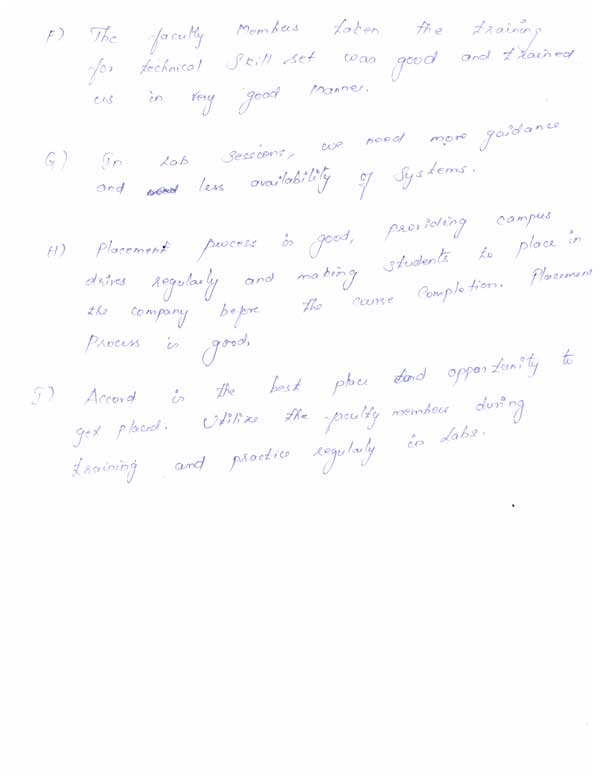 F) The faculty Members taken the training
for technical Skill set was good and trained
us in very good manner.
G) In Lab Sessions, we need more guidance
and less availability of Systems.
H) Placement process is good, providing campus
drives regularly and making students to place in
the company before the course completion. Placement
Process is good.
I) Accord is the best place and opportunity to
get placed. Utilize the faculty members during
training and practice regularly in Labs.